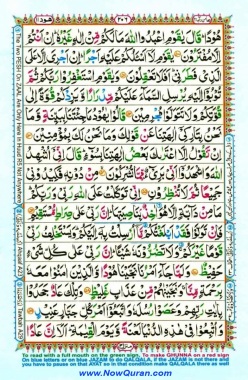 هود ١١
٢٠٦
هُوْدًا قَالَ يٰقَوْمِ اعْبُدُوا اللّٰهَ مَا لَكُمْ مِّنْ اِلٰهٍ غَيْرُهٗ اِنْ اَنْتُمْ
اِلَّا مُفْتَرُوْنَ يٰقَوْمِ لَآ اَسْـَٔلُكُمْ عَلَيْهِ اَجْرًا اِنْ اَجْرِيَ اِلَّا عَلَى
الَّذِيْ فَطَرَنِيْ اَفَلَا تَعْقِلُوْنَ وَيٰقَوْمِ اسْتَغْفِرُوْا رَبَّكُمْ ثُمَّ
تُوْبُوْٓا اِلَيْهِ يُرْسِلِ السَّمَآءَ عَلَيْكُمْ مِّدْرَارًا وَّيَزِدْكُمْ قُوَّةً اِلٰى
قُوَّتِكُمْ وَلَا تَتَوَلَّوْا مُجْرِمِيْنَ قَالُوْا يٰهُوْدُ مَا جِئْتَنَا بِبَيِّنَةٍ
وَّمَا نَحْنُ بِتَارِكِيْٓ اٰلِهَتِنَا عَنْ قَوْلِكَ وَمَا نَحْنُ لَكَ بِمُؤْمِنِيْنَ
اِنْ نَّقُوْلُ اِلَّا اعْتَرٰىكَ بَعْضُ اٰلِهَتِنَا بِسُوْٓءٍ قَالَ اِنِّيْٓ اُشْهِدُ اللّٰهَ
وَاشْهَدُوْٓا اَنِّيْ بَرِيْٓءٌ مِّمَّا تُشْرِكُوْنَ مِنْ دُوْنِهٖ فَكِيْدُوْنِيْ
جَمِيْعًا ثُمَّ لَا تُنْظِرُوْنِ اِنِّيْ تَوَكَّلْتُ عَلَى اللّٰهِ رَبِّيْ وَرَبِّكُمْ
مَا مِنْ دَآبَّةٍ اِلَّا هُوَ اٰخِذٌۢ بِنَاصِيَتِهَا اِنَّ رَبِّيْ عَلٰى صِرَاطٍ مُّسْتَقِيْمٍ
فَاِنْ تَوَلَّوْا فَقَدْ اَبْلَغْتُكُمْ مَّآ اُرْسِلْتُ بِهٖٓ اِلَيْكُمْ وَيَسْتَخْلِفُ رَبِّيْ
قَوْمًا غَيْرَكُمْ وَلَا تَضُرُّوْنَهٗ شَيْـًٔا اِنَّ رَبِّيْ عَلٰى كُلِّ شَيْءٍ
حَفِيْظٌ وَلَمَّا جَآءَ اَمْرُنَا نَجَّيْنَا هُوْدًا وَّالَّذِيْنَ اٰمَنُوْا مَعَهٗ
بِرَحْمَةٍ مِّنَّا وَنَجَّيْنٰهُمْ مِّنْ عَذَابٍ غَلِيْظٍ وَتِلْكَ عَادٌ جَحَدُوْا
بِاٰيٰتِ رَبِّهِمْ وَعَصَوْا رُسُلَهٗ وَاتَّبَعُوْٓا اَمْرَ كُلِّ جَبَّارٍ عَنِيْدٍ
وَاُتْبِعُوْا فِيْ هٰذِهِ الدُّنْيَا لَعْنَةً وَّيَوْمَ الْقِيٰمَةِ اَلَآ اِنَّ عَادًا
To read with a full mouth on the green sign, To make GHUNNA on a red sign
On blue letters or on blue JAZAM to do QALQALA. If the JAZAM is not there and
you have to pause on that AYAT as in that condition make QALQALA then there as well
www.NowQuran.com